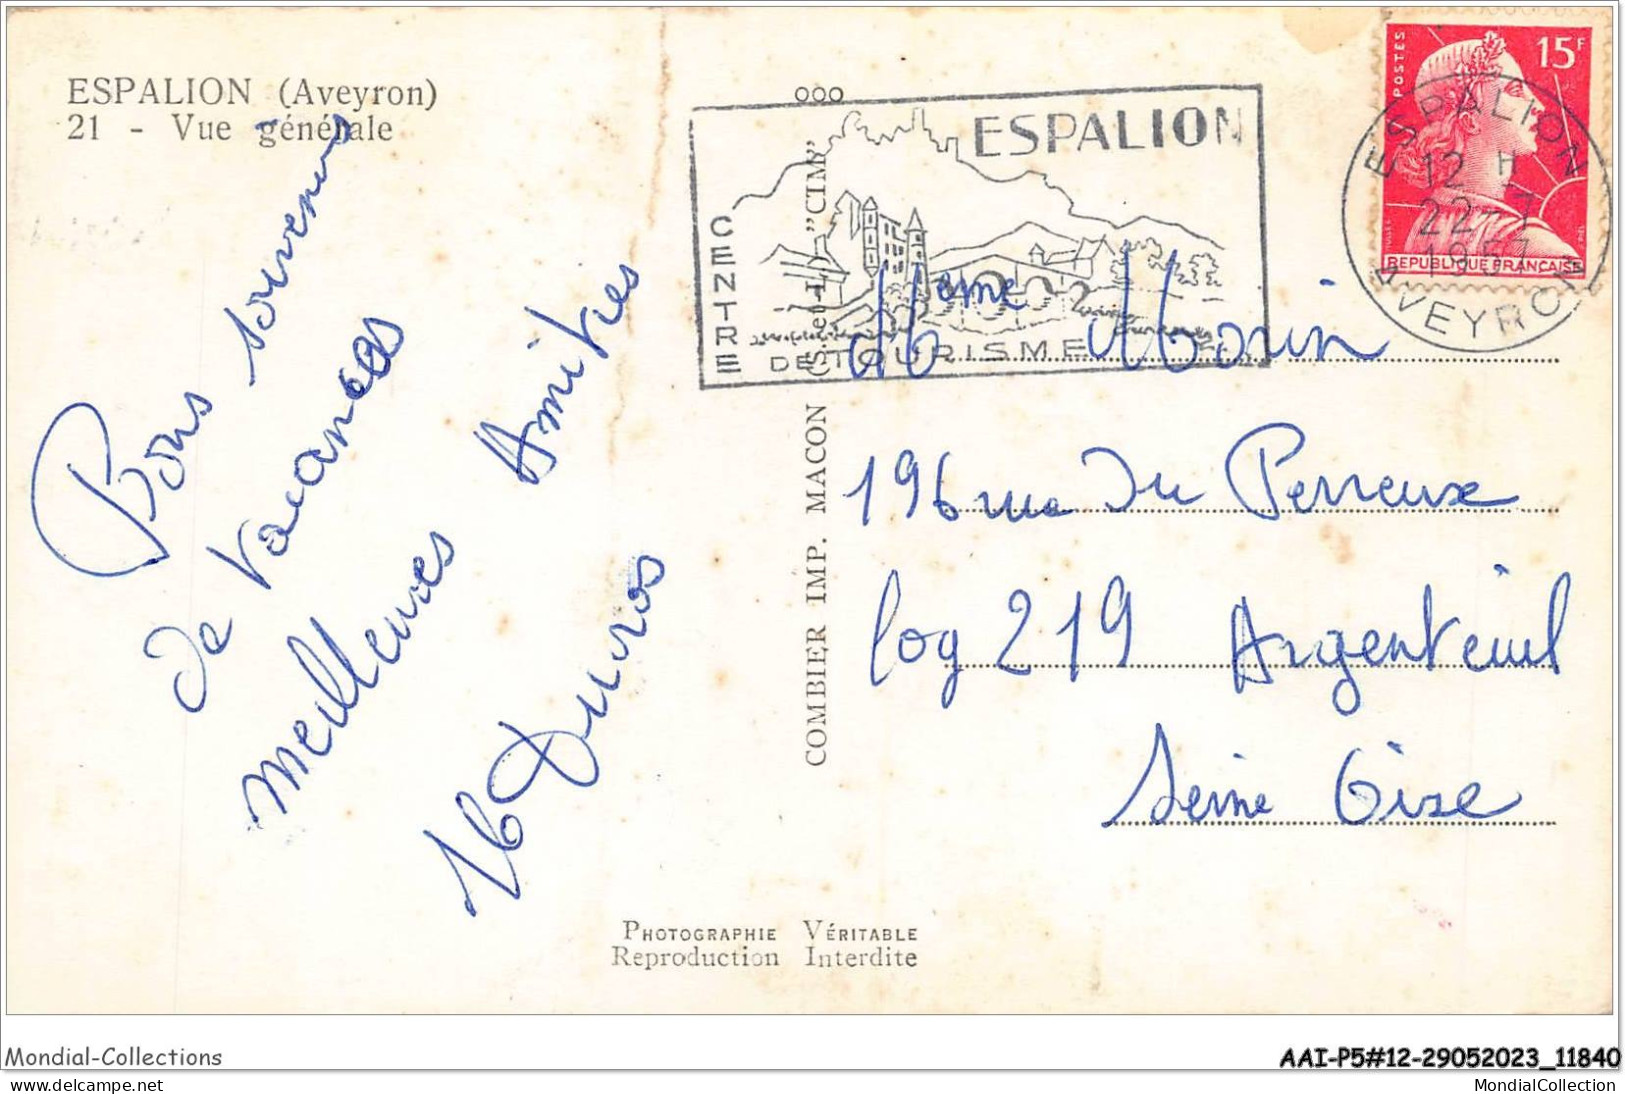 ESPALION (Aveyron)
21 - Vue générale
Bons souvenirs
de vacances
meilleures Amitiés
Duvros
ooo
ESPALION
CENTRE
DE TOURISME
S. et L.) "CIM"
COMBIER IMP. MACON
POSTES
15F
REPUBLIQUE FRANÇAISE
ESPALION
12 H
22-7
1957
AVEYRON
Meme Morin
196 rue du Perreux
log 219 Argenteuil
Seine Oise
PHOTOGRAPHIE VÉRITABLE
Reproduction Interdite
Mondial-Collections
AAI-P5#12-29052023_11840
© delcampe.net
MondialCollection